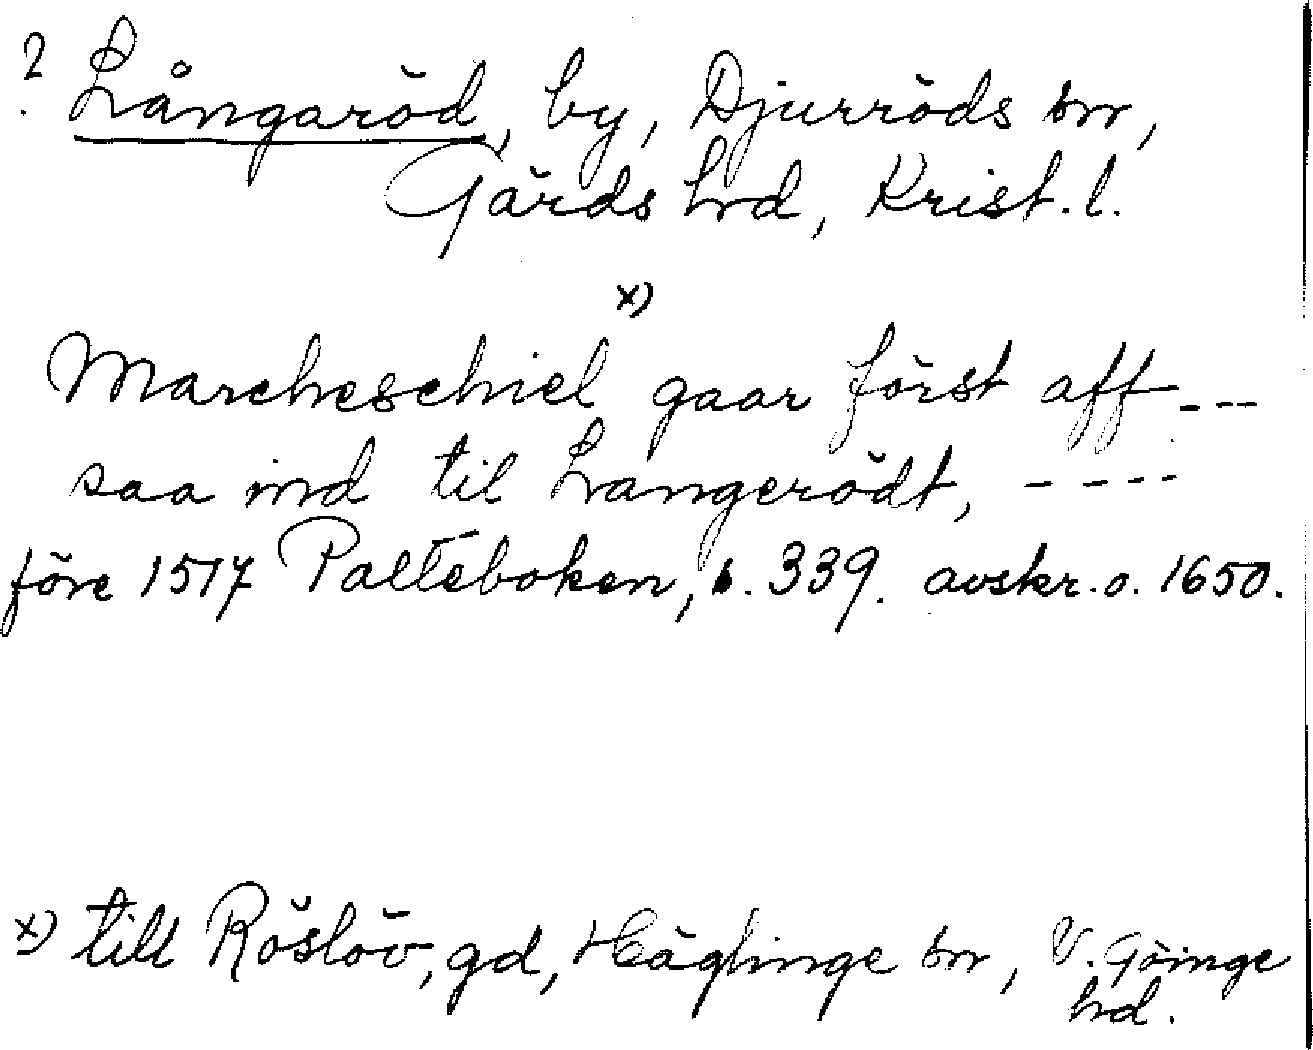 ? Långaröd, by, Djurröds sn,
Gärds hd, Krist. l.
x)
Marcheschiel gaar först aff ---
saa ind til Langerödt, ----
före 1517 Palteboken, s. 339. avskr. o. 1650.
x) till Röslöv, gd, Häglinge sn, V. Göinge
hd.